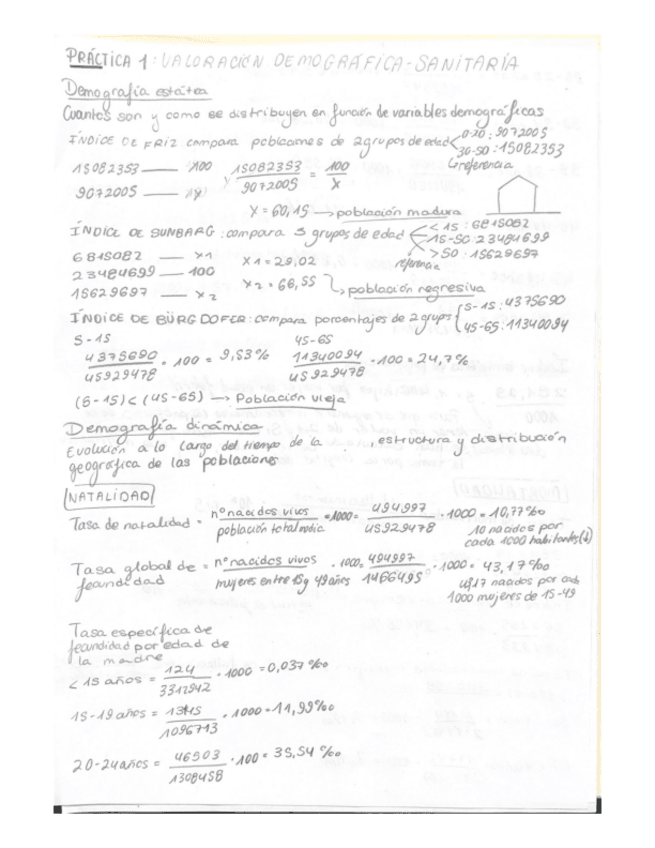 PRÁCTICA 1: VALORACIÓN DEMOGRÁFICA-SANITARÍA
Demografía estática
Cuantos son y como se distribuyen en función de variables demográficas
ÍNDICE DE FRIZ compara poblaciones de 2 grupos de edad
0-20: 9072005
30-50: 15082353
referencia
15082353 — 100
9072005 — x
15082353 / 9072005 = 100 / X
X = 60,15 → población madura
ÍNDICE DE SUNBARG: compara 3 grupos de edad
< 15: 6815082
15-50: 23484699
> 50: 15629697
referencia
6815082 — x1
23484699 — 100
15629697 — x2
x1 = 29,02
x2 = 66,55
población regresiva
ÍNDICE DE BÜRGDOFER: compara porcentajes de 2 grups
5-15: 4375690
45-65: 11340094
5-15
4375690 / 45929478 · 100 = 9,53%
45-65
11340094 / 45929478 · 100 = 24,7%
(5-15) < (45-65) → Población vieja
Demografía dinámica
Evolución a lo largo del tiempo de la , estructura y distribución
geográfica de las poblaciones
NATALIDAD
Tasa de natalidad = nº nacidos vivos / población total media · 1000 = 494997 / 45929478 · 1000 = 10,77‰
10 nacidos por
cada 1000 habitantes (↓)
Tasa global de fecundidad = nº nacidos vivos / mujeres entre 15 y 49 años · 1000 = 494997 / 1466495 · 1000 = 43,17‰
43,17 nacidos por cada
1000 mujeres de 15-49
Tasa específica de
fecundidad por edad de
la madre
< 15 años = 124 / 3312942 · 1000 = 0,037‰
15-19 años = 13145 / 1096713 · 1000 = 11,99‰
20-24 años = 46503 / 1308458 · 100 = 35,54‰